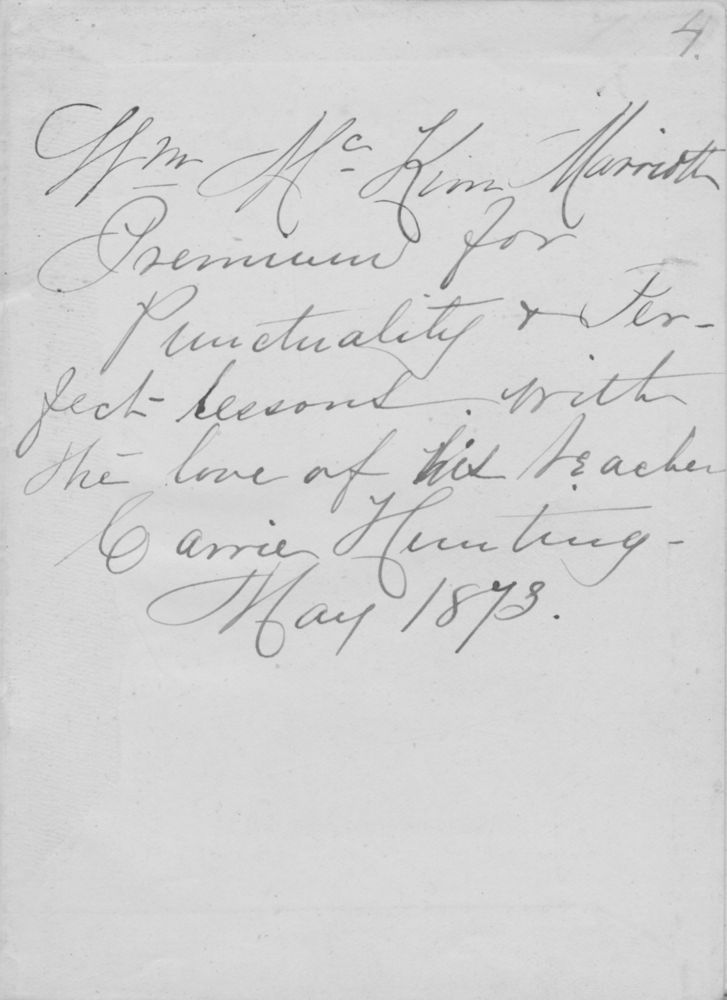 4.
Wm Mc Kim Marriott
Premium for
Punctuality & Per-
fect lessons. with
the love of his teacher
Carrie Hunting -
May 1873.